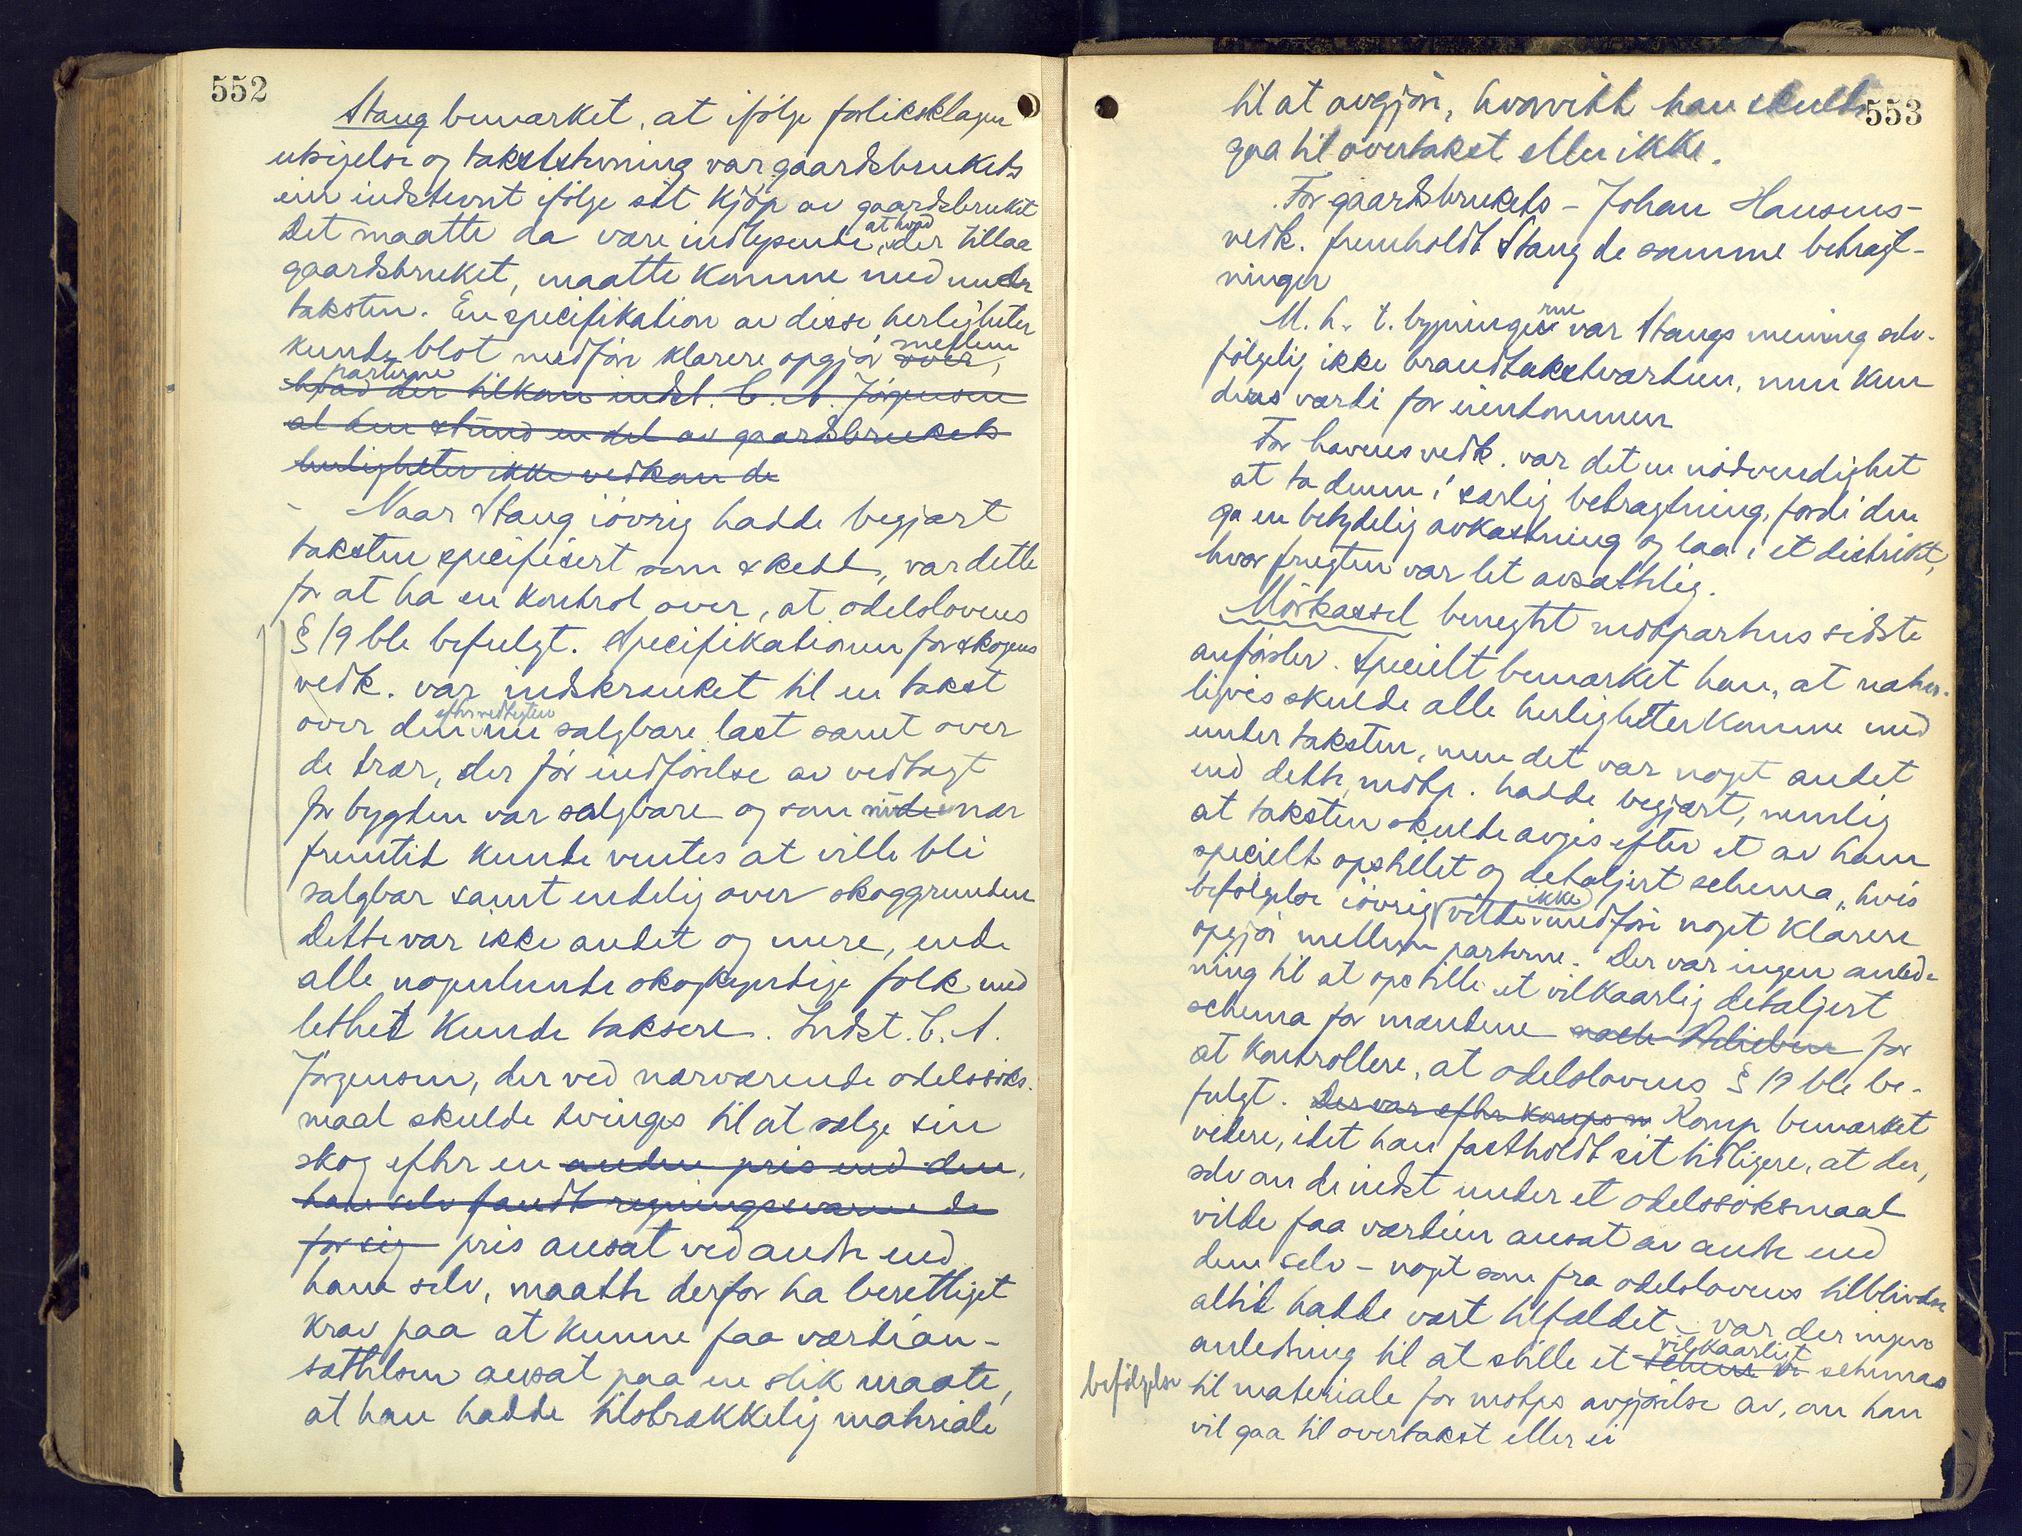 552
Stang bemærket, at ifölge forliksklagen
utsigelse og takststevning var gaardsbrukets
eier indstevnt ifölge sit kjöp av gaardsbruket
Det maatte da være indlysende, at hvad der tillaa
gaardsbruket, maatte komme med under
taksten. En specifikation av disse herligheter
kunde blot medföre klarere opgjör over, mellem
parterne
hvad der tilkom indst. C. A. Jörgensen
al den stund en del av gaardsbrukets
herligheter ikke vedkom de
- Naar Stang iövrig hadde begjært
taksten specifisert som skedd, var dette
for at ha en kontrol over, at odelslovens
§ 19 ble befulgt. Specifikationen for skogens
vedk. var indskrænket til en takst
over den efter vedtegten nu salgbare last samt over
de trær, der för indförelse av vedtægt
for bygden var salgbare og som nær
fremtid kunde ventes at ville bli
salgbar samt endelig over skoggrunden
Dette var ikke andet og mere, end
alle nogenlunde skogkyndige folk med
lethet kunde taksere. Indst. C. A.
Jörgensen, der ved nærværende odelssöks-
maal skulde tvinges til at sælge sin
skog efter en anden pris end den,
han selv fandt regningssvarende
for sig pris ansat ved andre end
ham selv, maatte derfor ha berettiget
krav paa at kunne faa værdian-
sættelsen ansat paa en slik maate,
at han hadde tilstrækkelig materiale
553
til at avgjöre, hvorvidt han skulde
gaa til overtakst eller ikke.
For gaardsbrukets - Johan Hansens -
vedk. fremholdt Stang de samme betragt-
ninger
M. h. t. bygningerne var Stangs mening selv-
fölgelig ikke brandtakstværdien, men kun
deres værdi for eiendommen
For havens vedk. var det en nödvendighet
at ta denne i særlig betragtning, fordi den
ga en betydelig avkastning og laa i et distrikt,
hvor frugten var let avsættelig.
Mörkassel benegtet motpartens sidste
anförsler. Specielt bemærket han, at natur-
ligvis skulde alle herligheter komme med
under taksten, men det var noget andet
end dette motp. hadde begjært, nemlig
at taksten skulde avgis efter et av ham
specielt opstillet og detaljert schema, hvis
befölgelse iövrig vilde ikke medföre noget klarere
opgjör mellem parterne. Der var ingen anled-
ning til at opstille et vilkaarlig detaljert
schema for mændene for
at kontrollere, at odelslovens § 19 ble be-
fulgt. Der var efter komps m Komp bemærket
videre, idet han fastholdt sit tidligere, at der,
selv om de indst under et odelssöksmaal
vilde faa værdien ansat av andre end
dem selv - noget som fra odelslovens tilblivelse
altid hadde vært tilfældet - var der ingen
anledning til at stille et vilkaarligt schemas
befölgelse
til materiale for motps avgjörelse av, om han
vil gaa til overtakst eller ei